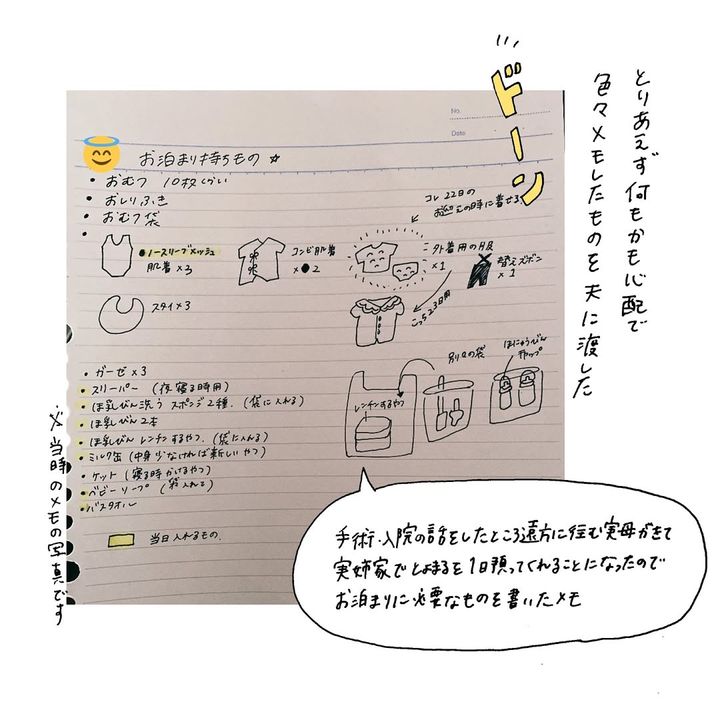 とりあえず何もかも心配で
色々メモしたものを夫に渡した
ドーン
No.
Date
お泊まり持ちもの ☆
• おむつ 10枚くらい
• おしりふき
• おむつ袋
•
●ノースリーブメッシュ
肌着×3
コンビ肌着
×●2
コレ22日の
お迎えの時に着せる
外着用の服
×1
替えズボン
×1
こっち23日用
スタイ×3
• ガーゼ×3
• スリーパー (夜寝る時用)
• ほ乳びん洗う スポンジ2種. (袋に入れる)
• ほ乳びん2本
• ほ乳びん レンチンするやつ. (袋に入れる)
• ミルク缶 (中身少なければ新しいやつ)
• ケット (寝る時かけるやつ)
• ベビーソープ (袋入れて)
• バスタオル
別々の袋
ほにゅうびん
キャップ
レンチンするやつ
当日入れるもの.
※当時のメモの写真です
手術・入院の話をしたところ遠方に住む実母がきて
実姉家でとまるを1日預ってくれることになったので
お泊まりに必要なものを書いたメモ